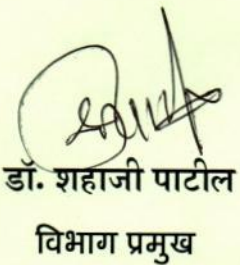 डॉ. शहाजी पाटील
विभाग प्रमुख